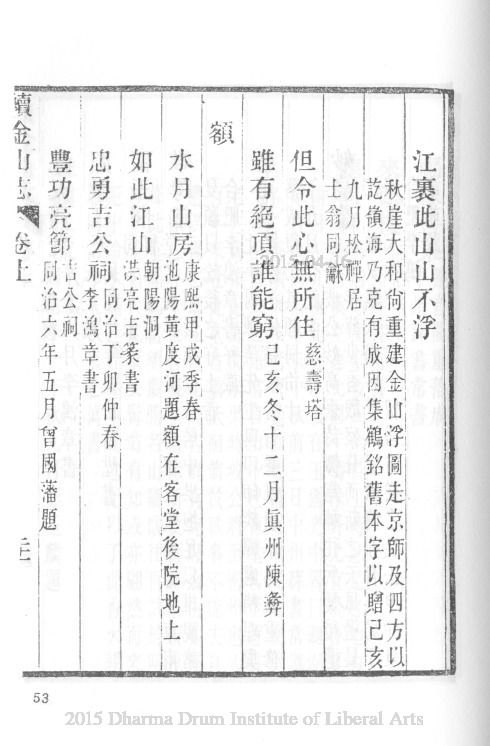 江裏此山山不浮
秋崖大和尙重建金山浮圖走京師及四方以
訖嶺海乃克有成因集鶴銘舊本字以贈己亥
九月松禪居
士翁同龢
但令此心無所住慈壽塔
雖有絕頂誰能窮己亥冬十二月眞州陳彝
額
水月山房康熙甲戌季春
池陽黃度河題額在客堂後院地上
如此江山朝陽洞
洪亮吉篆書
忠勇吉公祠同治丁卯仲春
李鴻章書
豐功亮節吉公祠
同治六年五月曾國藩題
續金山志 卷上
2015-04-16
53
2015 Dharma Drum Institute of Liberal Arts